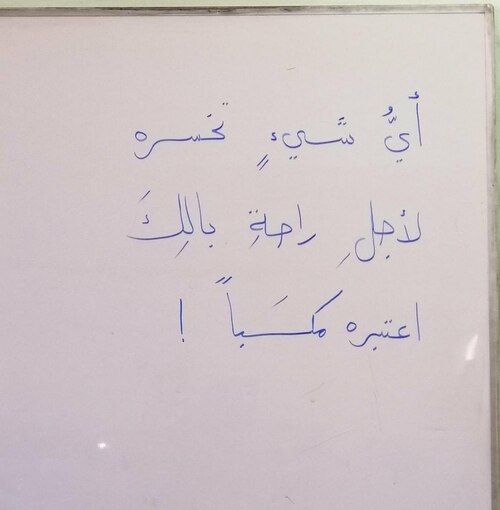 أيُّ شَيءٍ تخسره
لأجلِ راحةِ بالِكَ
اعتبره مكسَباً !